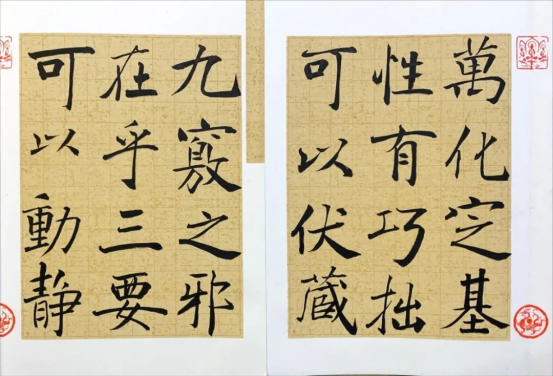 萬化定基
性有巧拙
可以伏藏
九竅之邪
在乎三要
可以動靜